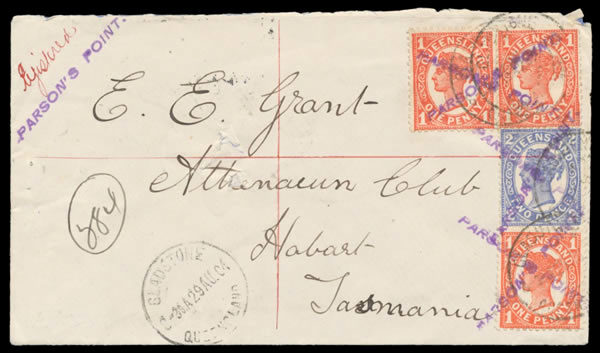 Registered
PARSON'S POINT.
E. E. Grant
Athenaeun Club
Hobart
Tasmania
384
GLADSTONE
29AU.04
QUEENSLAND
QUEENSLAND
1 1
ONE PENNY
QUEENSLAND
1 1
ONE PENNY
PARSON'S POINT.
QUEENSLAND
TWO PENCE
PARSON'S POINT.
QUEENSLAND
1 1
ONE PENNY